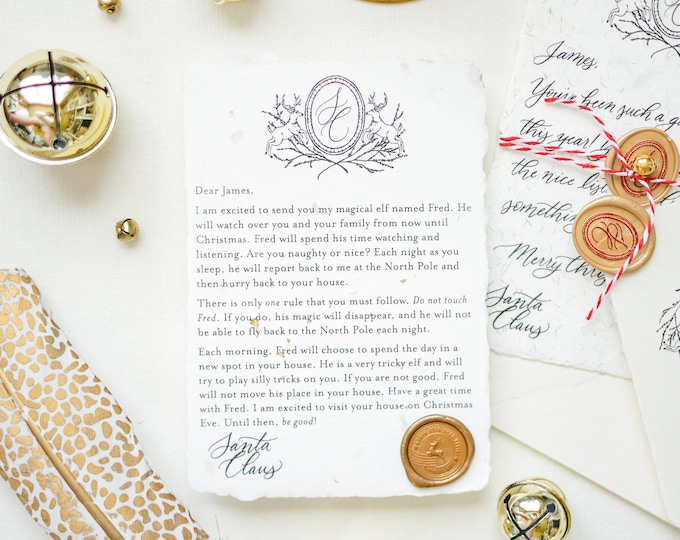 SC
Dear James,
I am excited to send you my magical elf named Fred. He
will watch over you and your family from now until
Christmas. Fred will spend his time watching and
listening. Are you naughty or nice? Each night as you
sleep, he will report back to me at the North Pole and
then hurry back to your house.
There is only one rule that you must follow. Do not touch
Fred. If you do, his magic will disappear, and he will not
be able to fly back to the North Pole each night.
Each morning, Fred will choose to spend the day in a
new spot in your house. He is a very tricky elf and will
try to play silly tricks on you. If you are not good, Fred
will not move his place in your house. Have a great time
with Fred. I am excited to visit your house on Christmas
Eve. Until then, be good!
Santa
Claus
James,
You've been such a
this year!
the nice
something
Merry
Santa
Claus